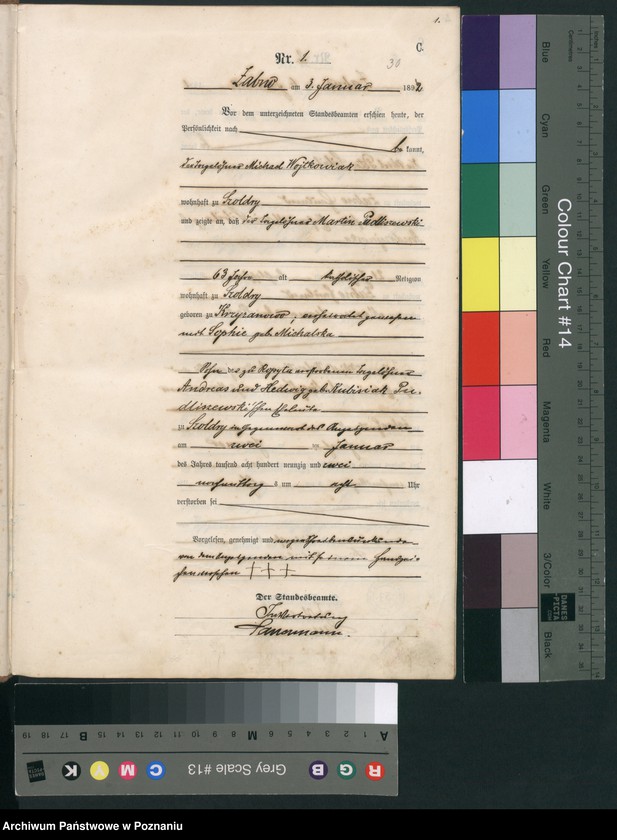 1.
C.
Nr. 1.
30
Żabno am 3. Januar 1892
Vor dem unterzeichneten Standesbeamten erschien heute, der
Persönlichkeit nach
be kannt,
der Tagelöhner Michael Wojtkowiak
wohnhaft zu Szoldry
und zeigte an, daß der Tagelöhner Martin Pudliszewski
63 Jahre alt katholischer Religion
wohnhaft zu Szoldry
geboren zu Krzyzanowo, verheirathet gewesen
mit Sophie geb. Michalska
Sohn des zu verstorbenen Tagelöhner
Andreas und Hedwig geb. Kubisiak Pu-
dliszewski'schen Eheleute
zu Szoldry in Gegenwart des Anzeigenden
am zwei ten Januar
des Jahres tausend acht hundert neunzig und zwei
nachmittag s um acht Uhr
verstorben sei
Vorgelesen, genehmigt und wegen Schreibensunkunde
von dem Anzeigenden mit seinem Handzei-
chen versehen + + +
Der Standesbeamte.
In Vertretung
Colour Chart #14
Blue
Cyan
Green
Yellow
Red
Magenta
White
3/Color
Black
Inches
Centimetres
DANES
PICTA
A 1 2 3 4 5 6 M 8 9 10 11 12 13 14 15 B 17 18 19
R G B Grey Scale #13 C M Y K
Archiwum Państwowe w Poznaniu